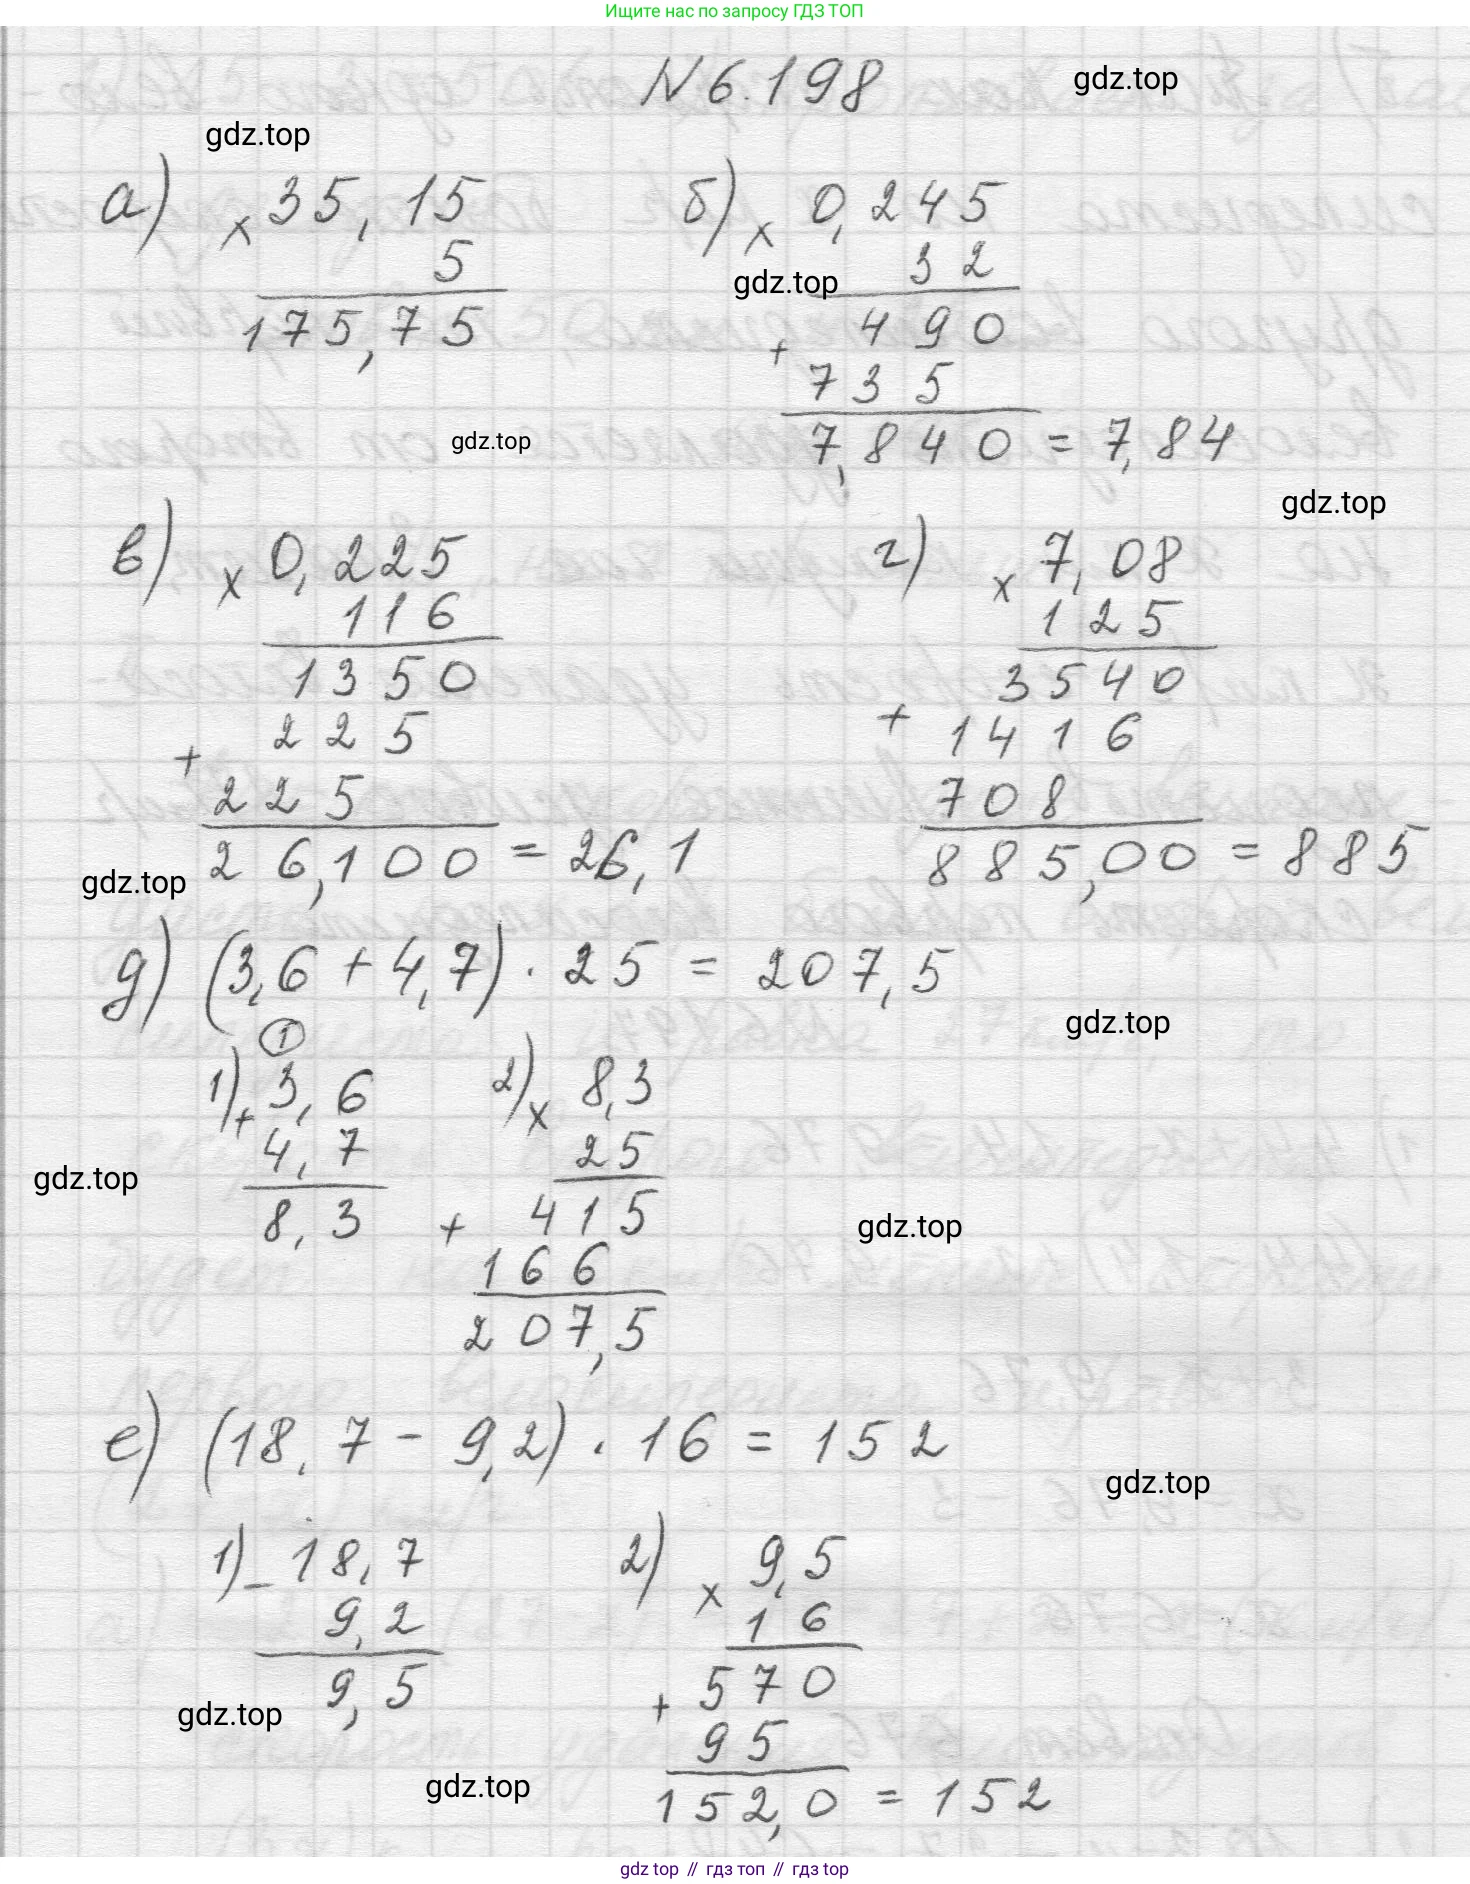 Ищите нас по запросу ГДЗ ТОП
N 6.198
gdz.top
gdz.top
а) × 35,15
5
175,75
б) × 0,245
gdz.top
32
490
+
735
7,840 = 7,84
gdz.top
gdz.top
в) × 0,225
116
1350
225
+
225
26,100 = 26,1
г) × 7,08
125
3540
+ 1416
708
885,00 = 885
gdz.top
д) (3,6 + 4,7) · 25 = 207,5
gdz.top
1
1) + 3,6
4,7
8,3
2) × 8,3
25
+ 415
166
207,5
gdz.top
gdz.top
е) (18,7 - 9,2) · 16 = 152
gdz.top
1) - 18,7
9,2
9,5
2) × 9,5
16
+ 570
95
152,0 = 152
gdz.top
gdz.top
gdz top // гдз топ // гдз top